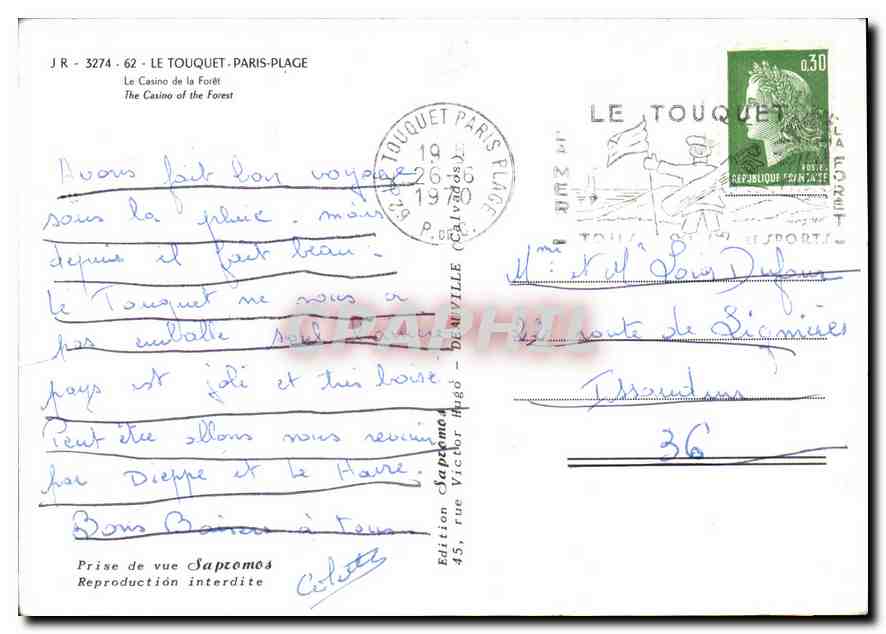 J R - 3274 - 62 - LE TOUQUET-PARIS-PLAGE
Le Casino de la Forêt
The Casino of the Forest
Avons fait bon voyage
sous la pluie. mais
depuis il fait beau.
Le Touquet ne nous a
pas emballé seul
pays est joli et très boisé.
Peut être allons nous revenir
par Dieppe et Le Havre.
Bons Baisers à tous
Colette
Prise de vue Sapromos
Reproduction interdite
Edition Sapromos
45, rue Victor Hugo - DEAUVILLE (Calvados)
62 LE TOUQUET PARIS PLAGE
19
26-6
1970
P. DE C.
LE TOUQUET
LA MER
LA FORET
TOUS LES SPORTS
0,30
POSTES
REPUBLIQUE FRANÇAISE
Mme et Mr Louis Dufour
22 route de Lignières
Issoudun
36
CPAPHIL